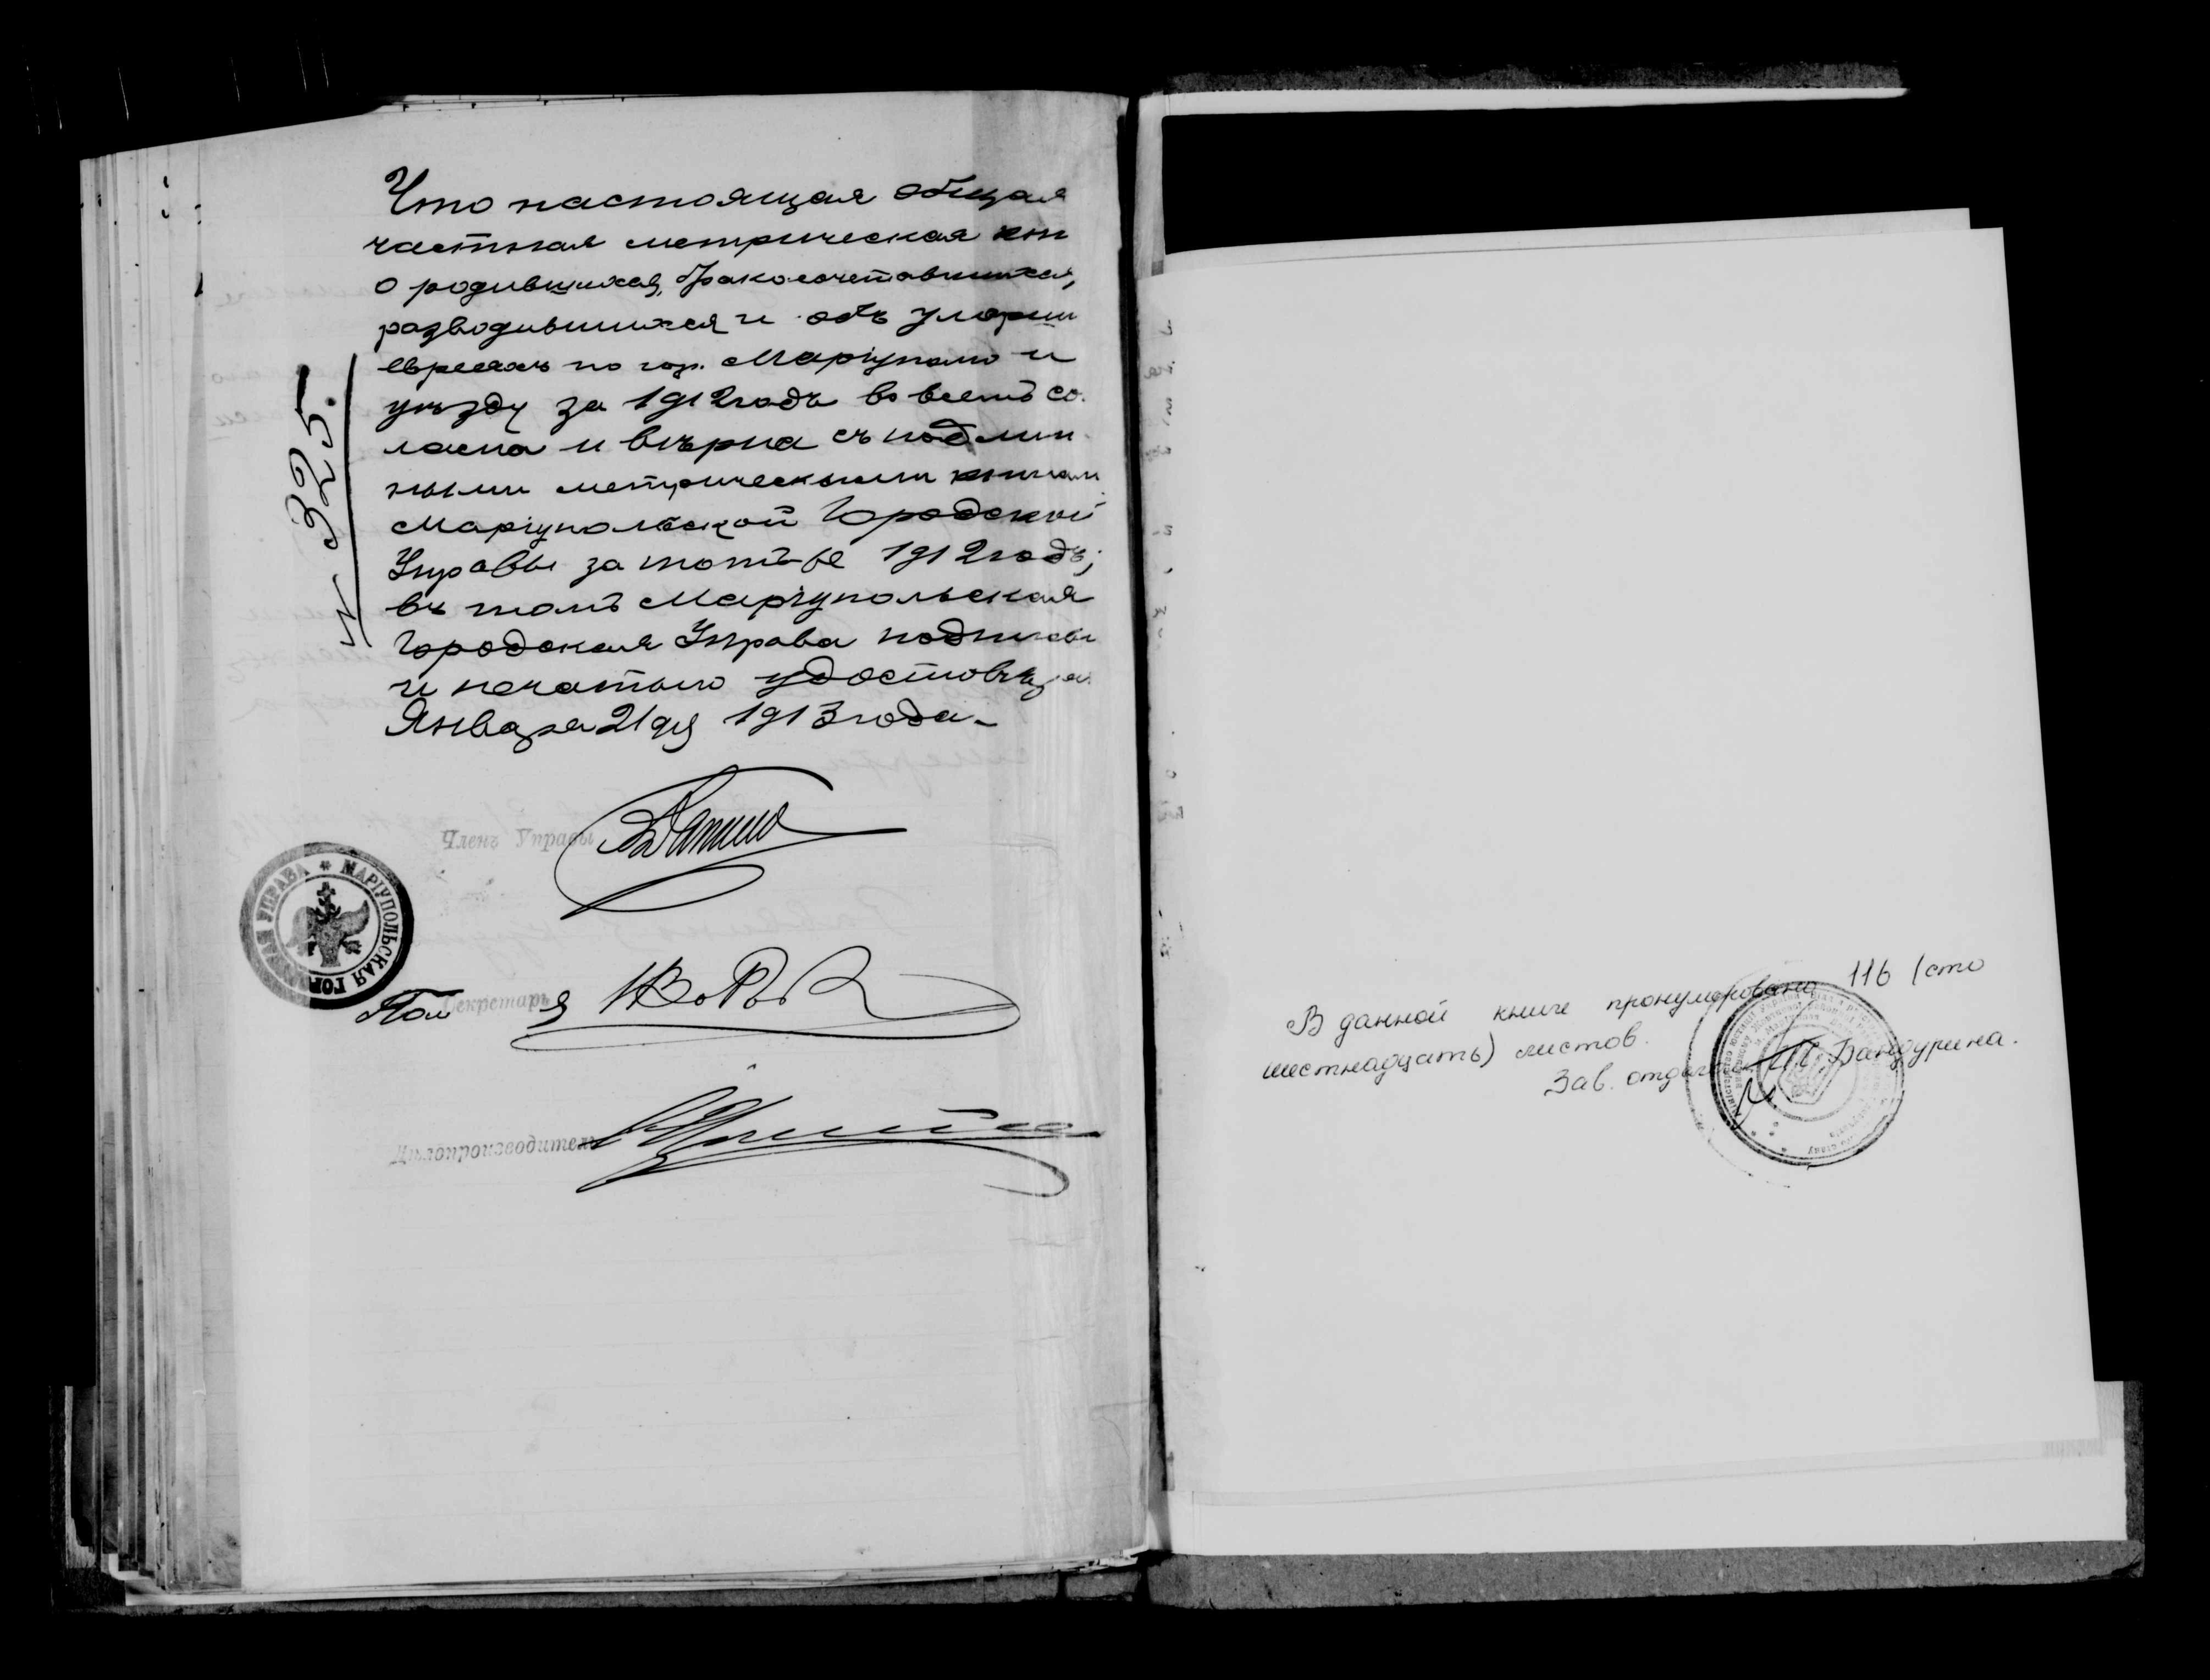 Что настоящая общая
частная метрическая кни
о родившихся, бракосочетавшихся,
разводившихся и объ умерши
евреяхъ по гор. Маріуполю и
уѣзду за 1912 годъ во всемъ со
гласна и вѣрна съ подлин
ными метрическими книгами
Маріупольской Городской
Управы за тотъ-же 1912 годъ;
въ томъ Маріупольская
Городская Управа подписью
и печатью удостовѣряе
Января 21 дня 1913 года.
№ 325.
Членъ Управы
МАРІУПОЛЬСКАЯ ГОРОДСКАЯ УПРАВА
Пом Секретаря
Дѣлопроизводитель
В данной книге пронумеровано 116 (сто
шестнадцать) листов.
Зав. отделом Бандурина.